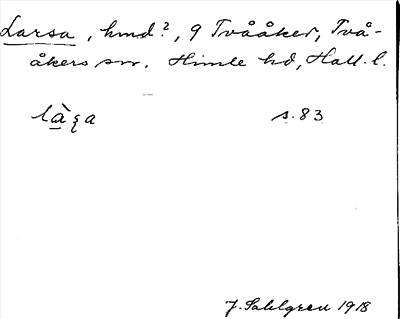 Larsa, hmd?, 9 Tvååker, Två-
åkers sn. Himle hd, Hall. l.
là̱ʂa s. 83
J. Sahlgren 1918